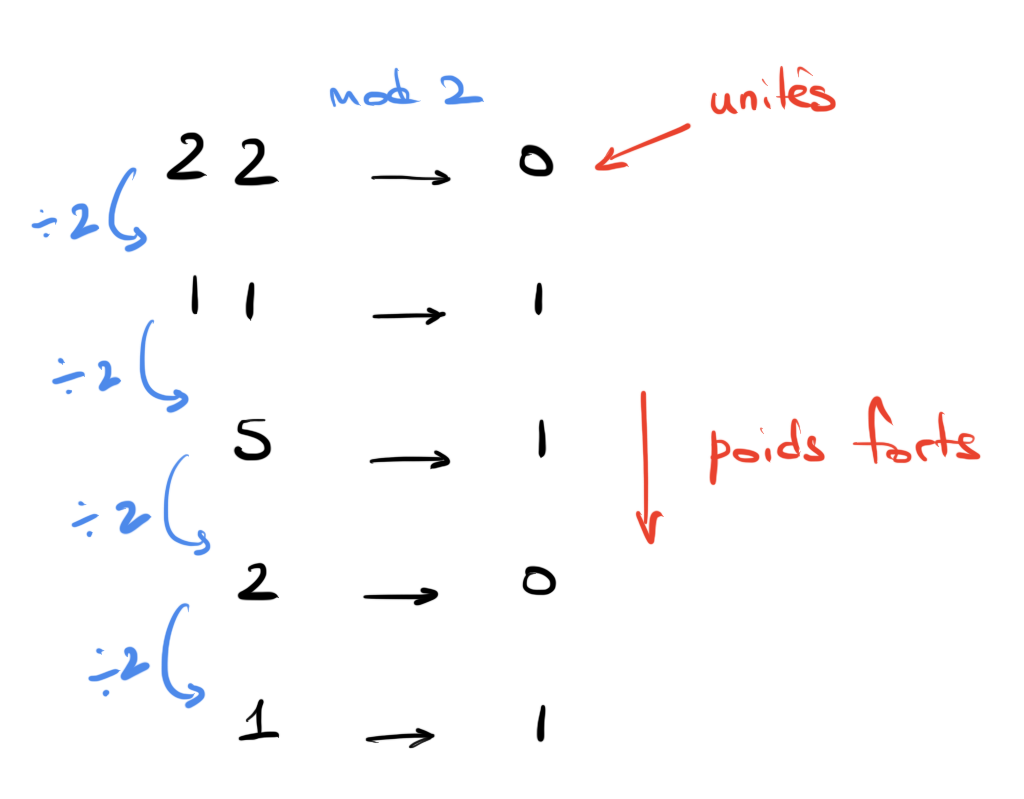 mod 2
unités
2 2 → 0
÷ 2
1 1 → 1
÷ 2
5 → 1
poids forts
÷ 2
2 → 0
÷ 2
1 → 1